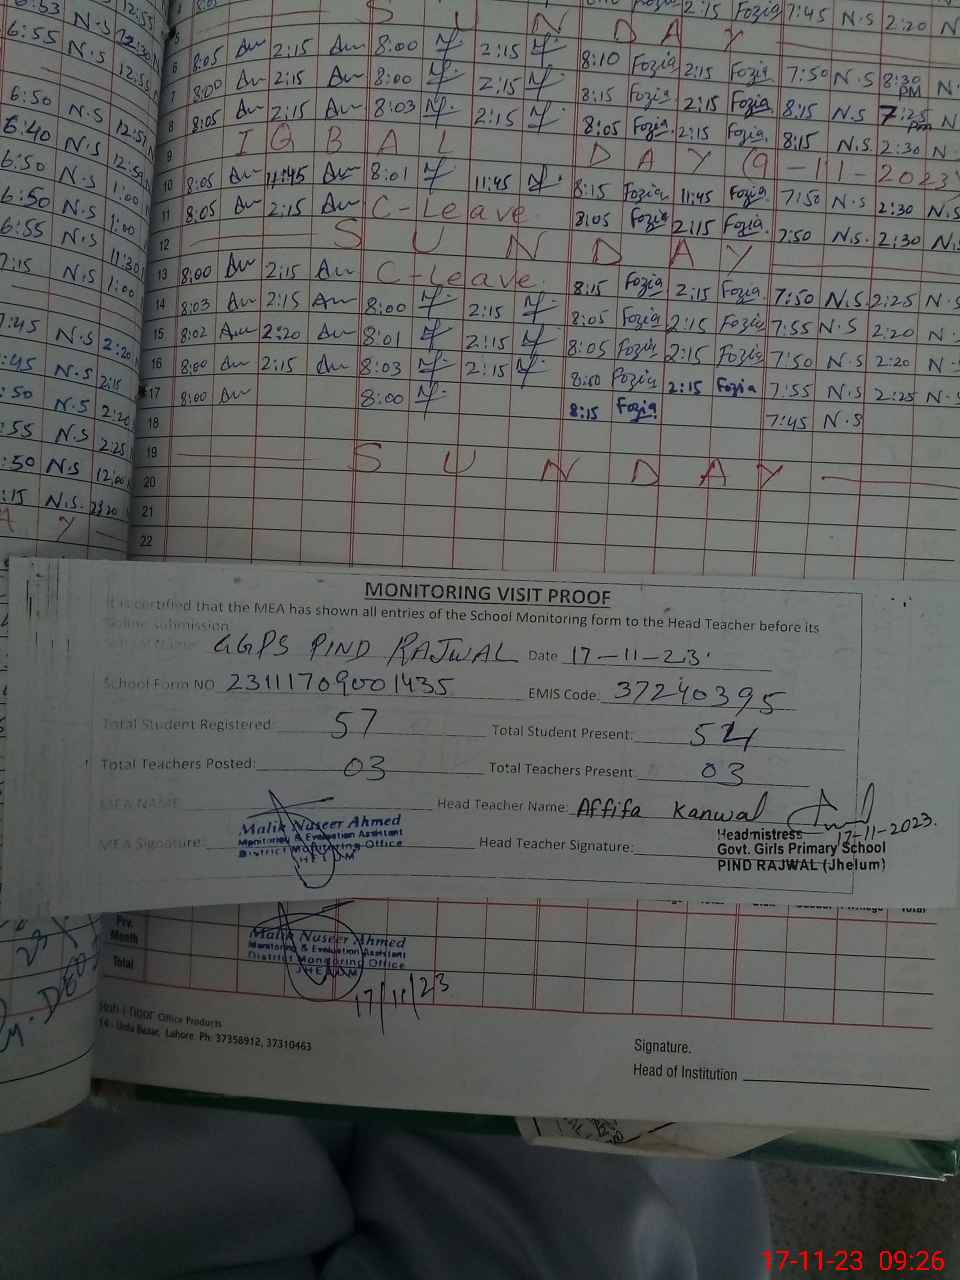 5 S U N D A Y 2:15 Fozia 7:45 N.S 2:20 N
6 8:05 2:15 8:00 2:15 8:10 Fozia 2:15 Fozia 7:50 N.S 8:30 PM N.
7 8:00 2:15 8:00 2:15 8:15 Fozia 2:15 Fozia 8:15 N.S 7:25 pm N.
8 8:05 2:15 8:03 2:15 8:05 Fozia 2:15 Fozia 8:15 N.S 2:30 N.
9 IQBAL DAY (9-11-2023)
10 8:05 11:45 8:01 11:45 8:15 Fozia 11:45 Fozia 7:50 N.S 2:30 N.S
11 8:05 2:15 C-Leave 8:05 Fozia 2:15 Fozia 7:50 N.S. 2:30 N.S
12 SUNDAY
13 8:00 2:15 C-Leave 8:15 Fozia 2:15 Fozia 7:50 N.S 2:25 N.S
14 8:03 2:15 8:00 2:15 8:05 Fozia 2:15 Fozia 7:55 N.S 2:20 N.
15 8:02 2:20 8:01 2:15 8:05 Fozia 2:15 Fozia 7:50 N.S 2:20 N.
16 8:00 2:15 8:03 2:15 Fozia 2:15 Fozia 7:55 N.S 2:25 N.S
17 8:00 8:00 8:15 Fozia 7:45 N.S
18
19 SUNDAY
20
21
22
6:53 N.S 12:55
6:55 N.S 12:30
6:50 N.S 12:55
6:40 N.S 12:57
6:50 N.S 12:59
6:50 N.S 1:00
6:55 N.S 1:00
7:15 N.S 11:30
1:00
7:45 N.S 2:20
:45 N.S 2:15
:50 N.S 2:20
:55 N.S 2:25
:50 N.S 12:00
:15 N.S. 2:20
A Y
MONITORING VISIT PROOF
It is certified that the MEA has shown all entries of the School Monitoring form to the Head Teacher before its
Online submission
School Name: GGPS PIND RAJWAL Date 17-11-23
School Form NO 23111709001435 EMIS Code: 37240395
Total Student Registered: 57 Total Student Present: 54
Total Teachers Posted: 03 Total Teachers Present: 03
MEA NAME Head Teacher Name: Affifa Kanwal
MEA Signature: Malik Naseer Ahmed
Monitoring & Evaluation Assistant
District Monitoring Office
JHELUM
Head Teacher Signature: 17-11-2023.
Headmistress
Govt. Girls Primary School
PIND RAJWAL (Jhelum)
Total
Prv. Month
Total
Malik Naseer Ahmed
Monitoring & Evaluation Assistant
District Monitoring Office
JHELUM
17/11/23
Office Products
14 - Urdu Bazar, Lahore. Ph: 37358912, 37310463
Signature.
Head of Institution
17-11-23 09:26